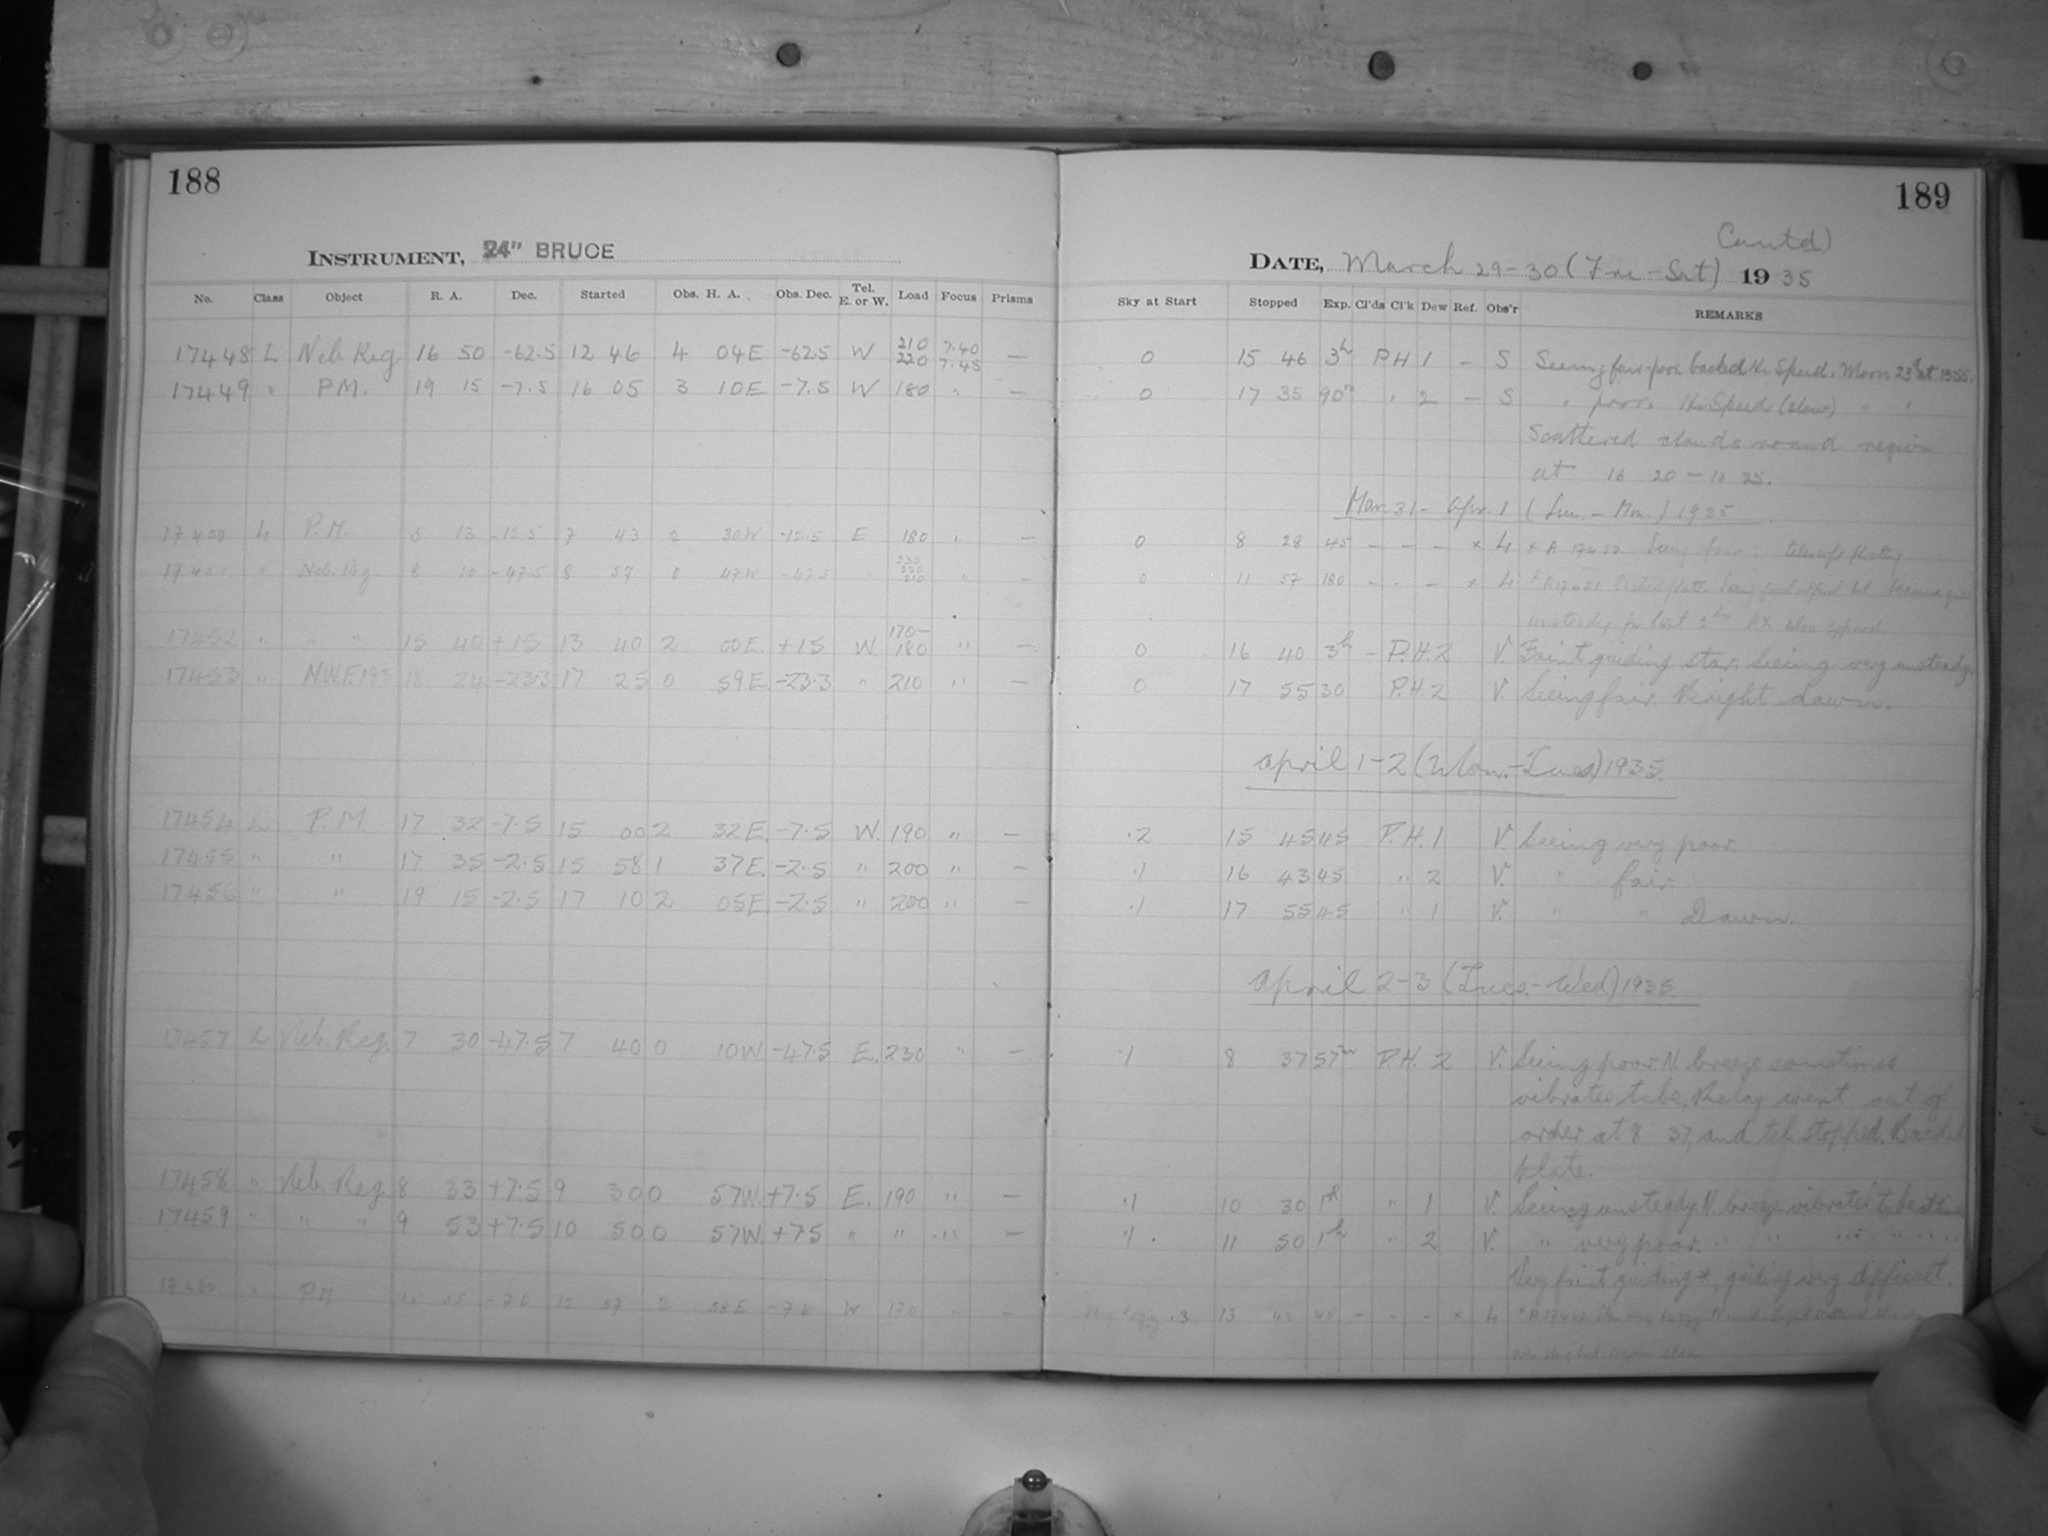 188
189
INSTRUMENT, 24" BRUCE
Contd)
DATE, March 29-30 (Fri - Sat) 1935
No. Class Object R. A. Dec. Started Obs. H. A. Obs. Dec. Tel. E. or W. Load Focus Prisms Sky at Start Stopped Exp. Cl'ds Cl'k Dew Ref. Obs'r REMARKS
17448 L Neb. Reg 16 50 -62.5 12 46 4 04E -62.5 W 210 220 7.40 7.45 — 0 15 46 3h P.H 1 - S Seeing fair-poor backed H. Speed. Moon at 1355.
17449 " P.M. 19 15 -7.5 16 05 3 10E -7.5 W 180 " — 0 17 35 90m " 2 - S " poor. H. Speed (slow) " "
Scattered clouds around region
at 16 20 - 16 25.
Mar. 31 - Apr. 1 (Sun. - Mon.) 1935
17450 L P.M. 13 -12.5 7 43 2 30W -12.5 E 180 " — 0 8 28 45 - - - x L x A 17450 Seeing fair;
17451 " Neb. Reg. 8 10 -47.5 8 57 0 47W -47.5 " 230 220 210 " - 0 11 57 180 - - - x L
unsteady for last
17452 " " " 15 40 +15 13 40 2 00E. +15 W. 170-180 " — 0 16 40 3h - P.H. 2 V. Faint guiding star. Seeing very unsteady.
17453 " N.W.F.193 18 24 -23.3 17 25 0 59E -23.3 " 210 " — 0 17 55 30 P.H. 2 V. Seeing fair. Bright dawn.
April 1-2 (Mon.-Tues) 1935.
17454 L. P. M. 17 32 -7.5 15 00 2 32E. -7.5 W. 190 " — .2 15 45 45 P.H. 1 V. Seeing very poor
17455 " " 17 35 -2.5 15 58 1 37E. -2.5 " 200 " — .1 16 43 45 " 2 V. " fair.
17456 " " 19 15 -2.5 17 10 2 05E. -2.5 " 200 " — .1 17 55 45 " 1 V. " " Dawn.
April 2-3 (Tues.-Wed) 1935.
17457 L Neb. Reg. 7 30 -47.5 7 40 0 10W -47.5 E. 230 " — .1 8 37 57m P.H. 2 V. Seeing poor. N. breeze sometimes
vibrates tube. Relay went out of
order at 8 37, and tel. stopped. Backed
plate.
17458 " Neb. Reg. 8 33 +7.5 9 30 0 57W. +7.5 E. 190 " — .1 10 30 1h " 1 V. Seeing unsteady. N. breeze vibrates tube
17459 " " " 9 53 +7.5 10 50 0 57W. +7.5 " " " — .1 11 50 1h " 2 V. " very poor. " " " " "
Very faint guiding *, guiding very difficult.
17460 " P.M. 15 55 -7.6 12 57 2 58E -7.6 W 170 " — Very hazy .3 13 42 45 - - - x L